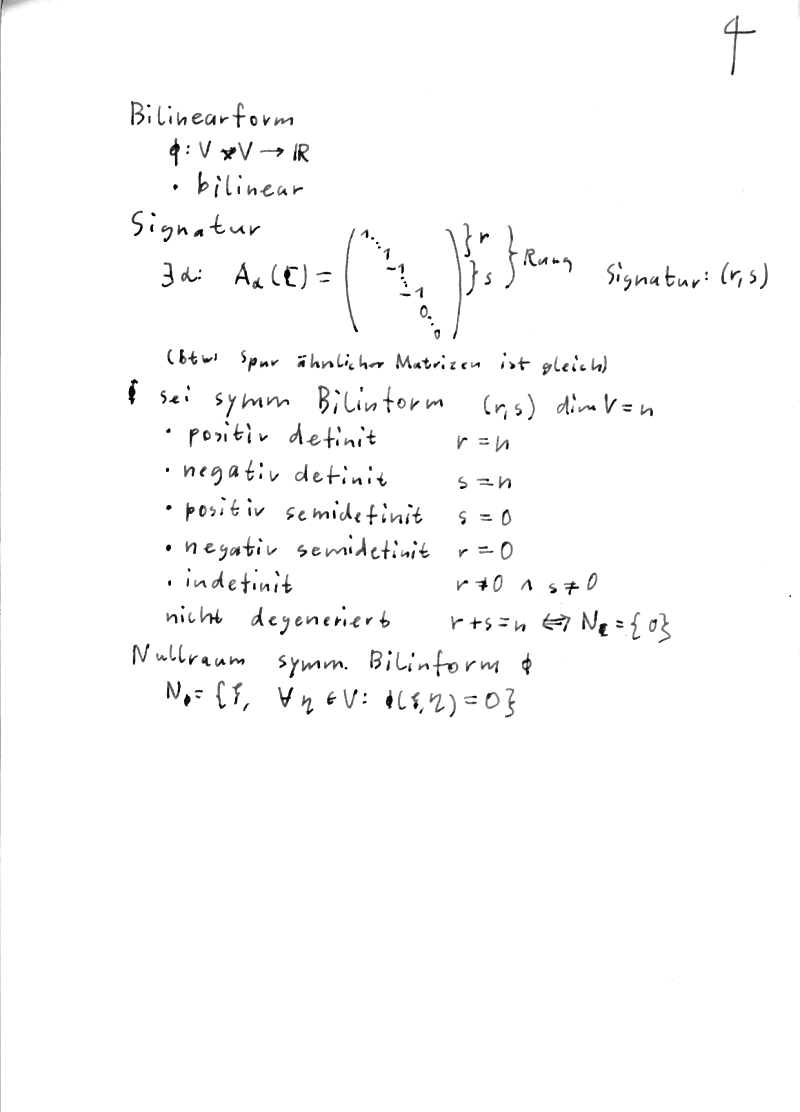 4
Bilinearform
ϕ: V × V → ℝ
• bilinear
Signatur
∃ α: A_α(C) = ( 1 ⋱ 1 -1 ⋱ -1 0 ⋱ 0 ) } r } s } Rang Signatur: (r, s)
(btw Spur ähnlicher Matrizen ist gleich)
ϕ sei symm Bilinform (r, s) dim V = n
• positiv definit r = n
• negativ definit s = n
• positiv semidefinit s = 0
• negativ semidefinit r = 0
• indefinit r ≠ 0 ∧ s ≠ 0
nicht degeneriert r + s = n ⇔ N = {0}
Nullraum symm. Bilinform ϕ
N_ϕ = {ξ, ∀ η ∈ V: ϕ(ξ, η) = 0}